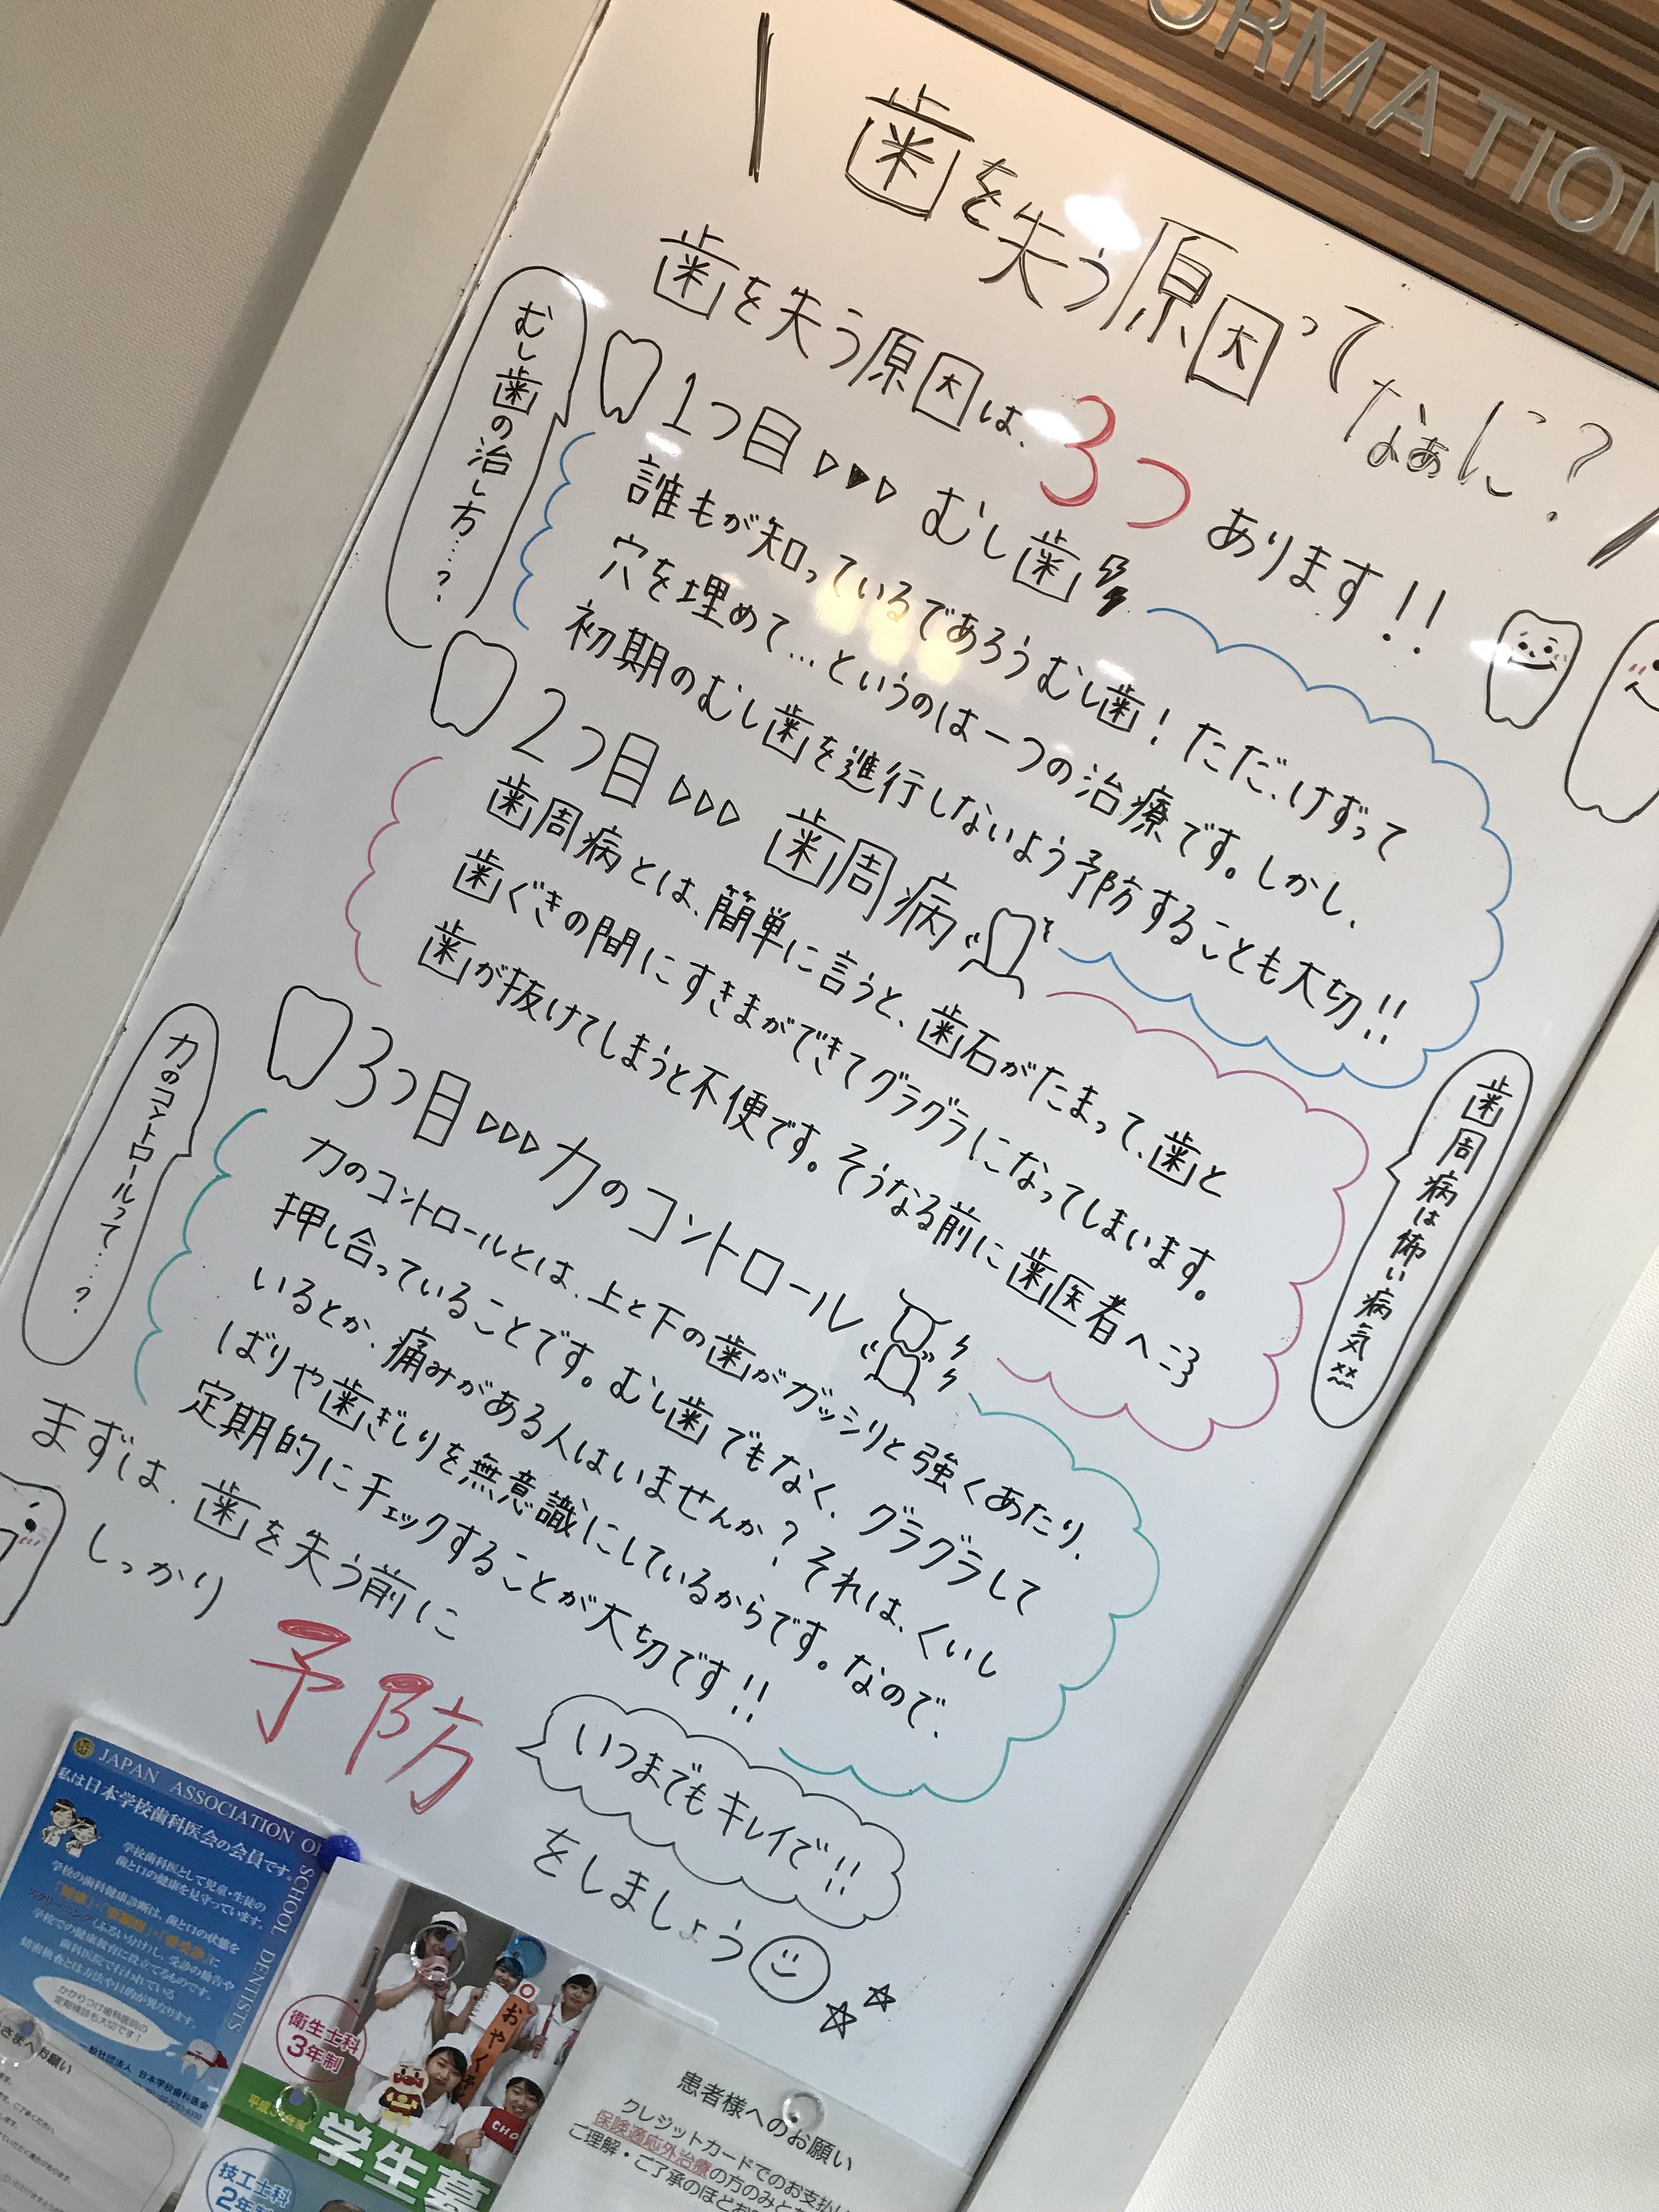 ORMATION
歯を失う原因ってなぁに?
歯を失う原因は、3つあります!!
1つ目▷▶▷むし歯
むし歯の治し方……?
誰もが知っているであろうむし歯!ただ、けずって
穴を埋めて…というのは一つの治療です。しかし、
初期のむし歯を進行しないよう予防することも大切!!
2つ目▷▷▷歯周病
歯周病とは、簡単に言うと、歯石がたまって、歯と
歯ぐきの間にすきまができてグラグラになってしまいます。
歯が抜けてしまうと不便です。そうなる前に歯医者へ
歯周病は怖い病気
3つ目▷▷▷力のコントロール
力のコントロールって……?
力のコントロールとは、上と下の歯がガッシリと強くあたり、
押し合っていることです。むし歯でもなく、グラグラして
いるとか、痛みがある人はいませんか?それは、くいし
ばりや歯ぎしりを無意識にしているからです。なので、
定期的にチェックすることが大切です!!
まずは、歯を失う前に
しっかり
予防
いつまでもキレイで!!
をしましょう
JAPAN ASSOCIATION OF SCHOOL DENTISTS
私は日本学校歯科医会の会員です。
学校歯科医として児童・生徒の
歯と口の健康を見守っています。
学校の歯科健康診断は、歯と口の状態を
スクリーニング(ふるい分け)し、受診の勧告や
学校での健康教育に役立てるものです。
歯科医院で行われている
精密検査とは方法や目的が異なります。
かかりつけ歯科医院の
定期検診も大切です!
一般社団法人 日本学校歯科医会
お願い
衛生士科
3年制
おやくそ
CHO
学生募
技工士科
患者様へのお願い
クレジットカードでのお支払い
保険適応外治療の方のみと
ご理解・ご了承のほどお